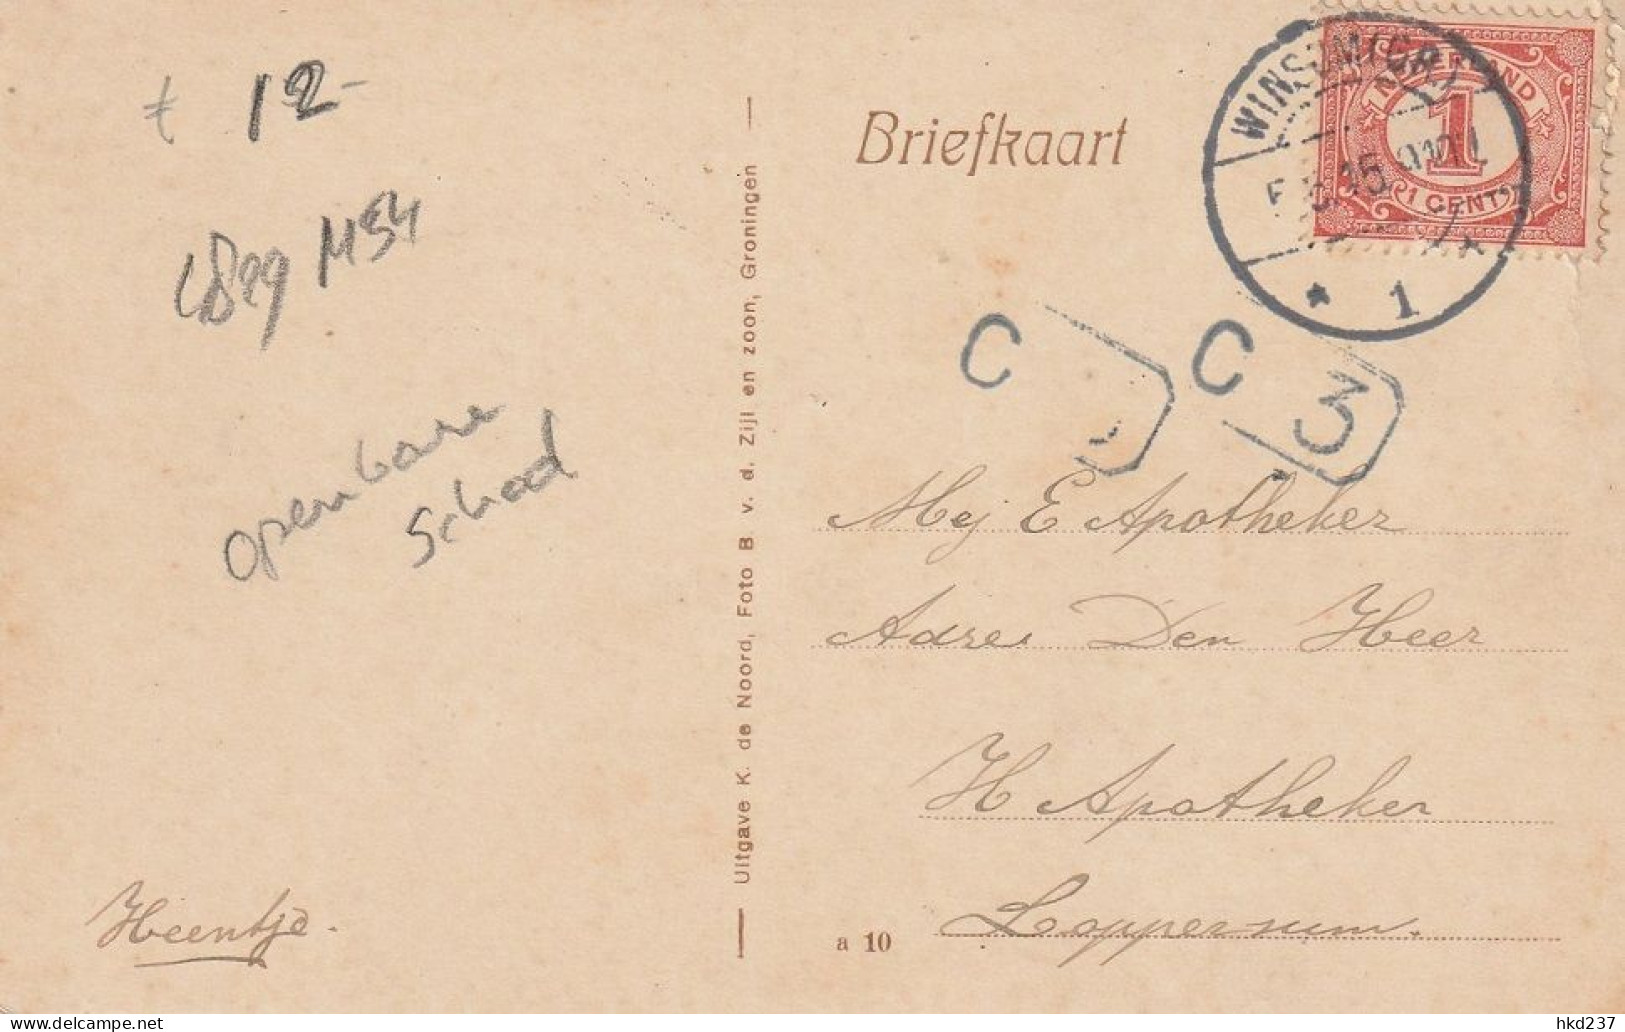 12-
openbare
school
Heentje.
Uitgave K. de Noord, Foto B v. d. Zijl en zoon, Groningen
Briefkaart
WINSUM (GR.)
15
1
NEDERLAND
1
1 CENT
C
C 3
Mej E Apotheker
Adres Den Heer
H Apotheker
Loppersum.
a 10
delcampe.net
hkd237